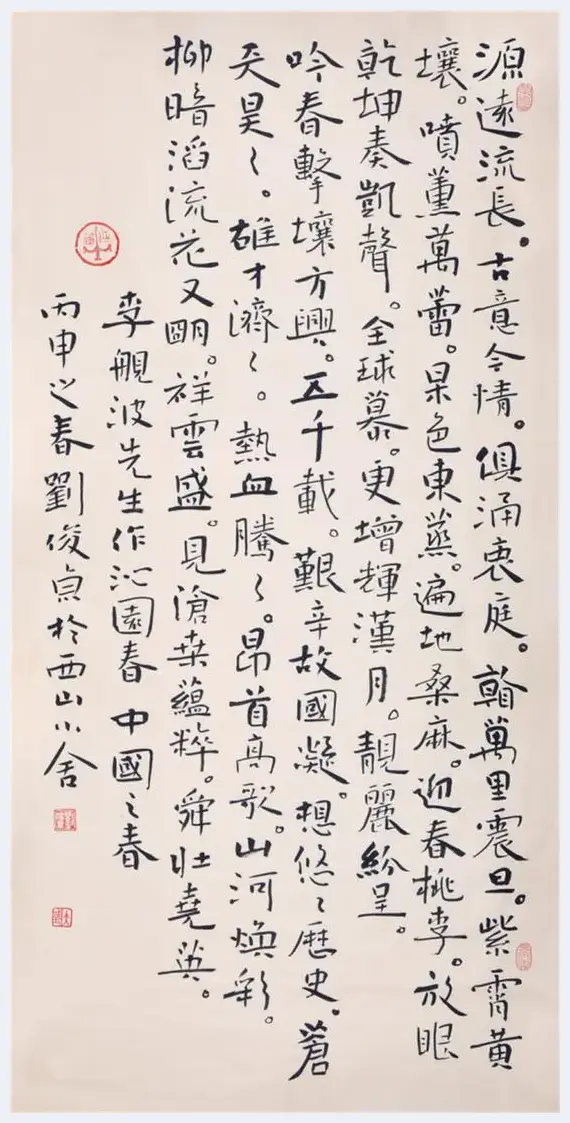 源遠流長。古意今情。俱涌衷庭。翰萬里震旦。紫霄黄
壤。噴薰萬蕾。杲色東蒸。遍地桑麻。迎春桃李。放眼
乾坤奏凱聲。全球慕。更增輝漢月。靚麗紛呈。
吟春擊壤方興。五千載。艱辛故國凝。想悠〻歷史。蒼
天昊〻。雄才濟〻。熱血騰〻。昂首高歌。山河煥彩。
柳暗滔流花又朙。祥雲盛。見滄桒蘊粹。舜壯堯英。
李波先生作沁園春中國之春
丙申之春劉俊貞於西山小舍